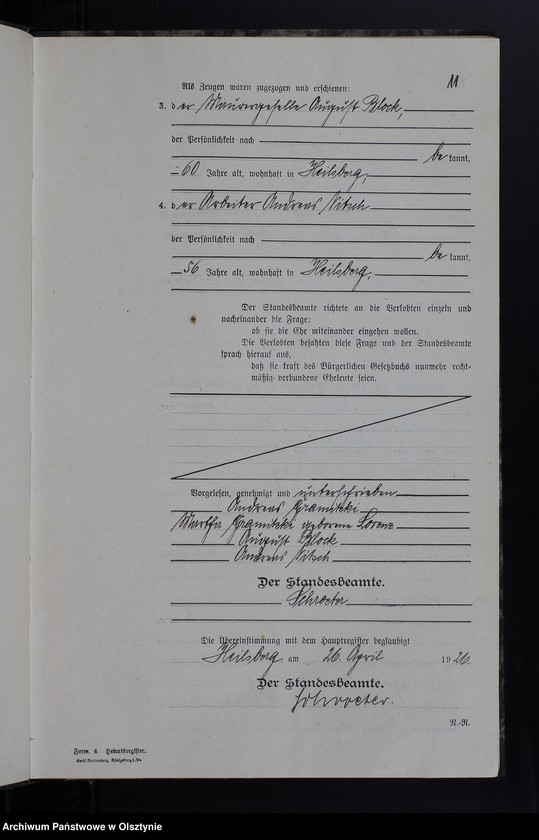 11
Als Zeugen waren zugezogen und erschienen:
3. der Maurergeselle August Block,
der Persönlichkeit nach
bekannt,
60 Jahre alt, wohnhaft in Heilsberg,
4. der Arbeiter Andreas Nitsch
der Persönlichkeit nach
bekannt,
56 Jahre alt, wohnhaft in Heilsberg.
Der Standesbeamte richtete an die Verlobten einzeln und
nacheinander die Frage:
ob sie die Ehe miteinander eingehen wollen.
Die Verlobten bejahten diese Frage und der Standesbeamte
sprach hierauf aus,
daß sie kraft des Bürgerlichen Gesetzbuchs nunmehr recht-
mäßig verbundene Eheleute seien.
Vorgelesen, genehmigt und unterschrieben
Andreas Gramitzki
Martha Gramitzki geborene Lorenz
August Block
Andreas Nitsch
Der Standesbeamte.
Schroeter
Die Übereinstimmung mit dem Hauptregister beglaubigt
Heilsberg am 26. April 1926.
Der Standesbeamte.
Schroeter.
N.-R.
Form. 4. Heiratsregister.
Archiwum Państwowe w Olsztynie